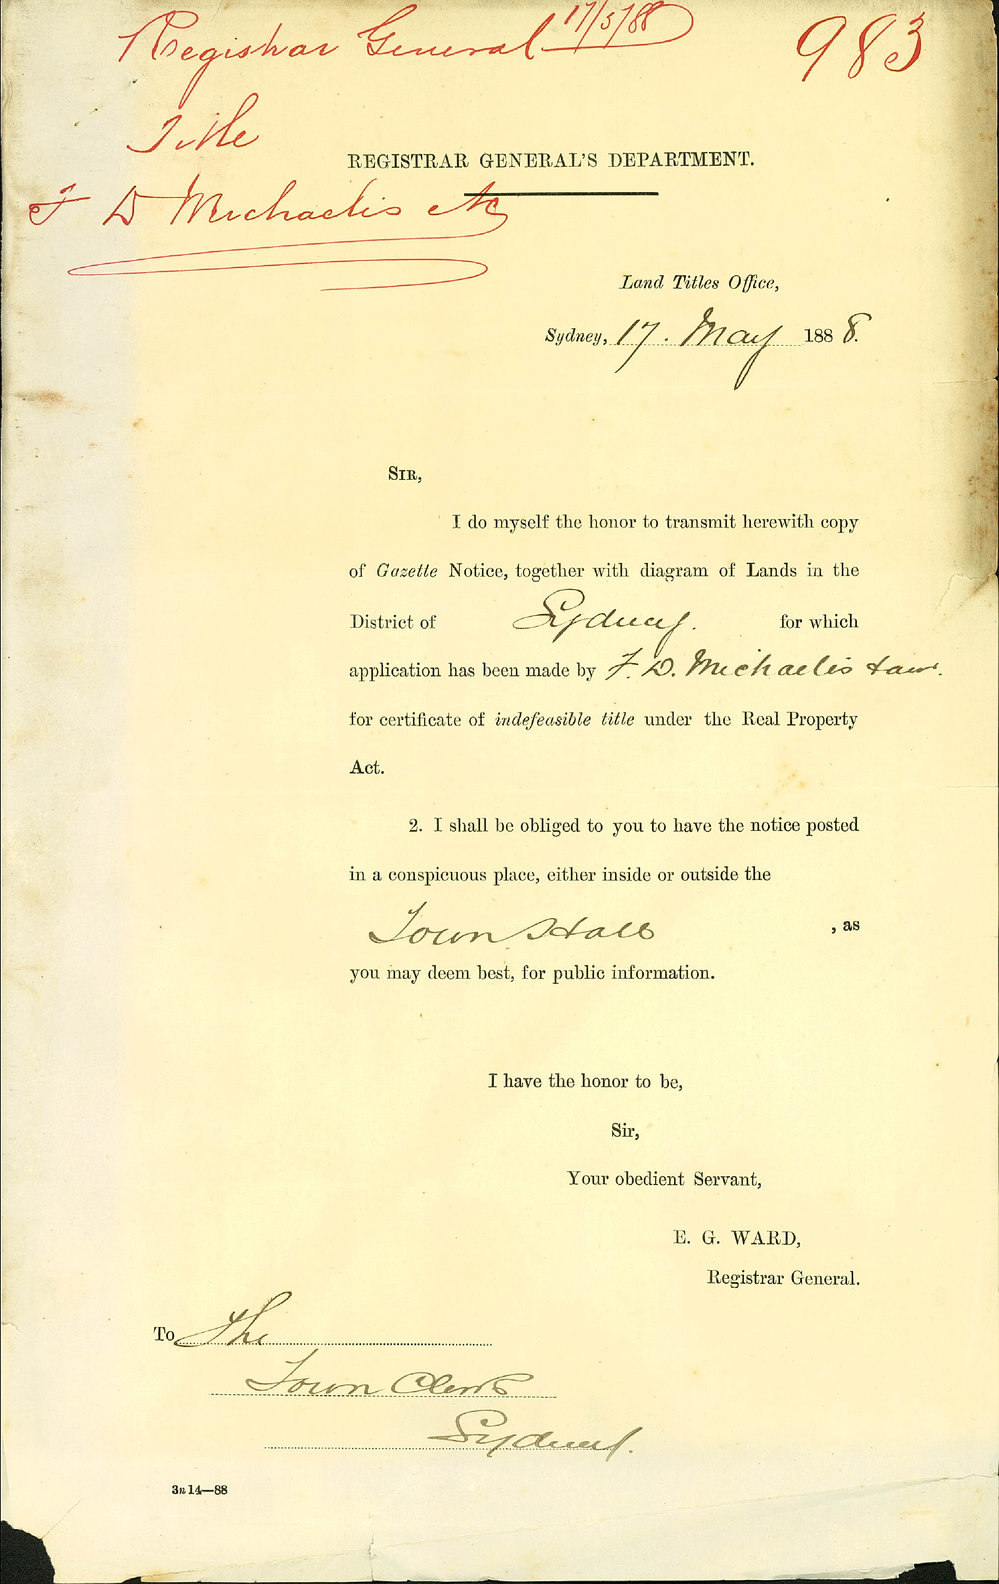 Registrar General 17/5/88
983
Title
F D Michaelis &c
REGISTRAR GENERAL'S DEPARTMENT.
Land Titles Office,
Sydney, 17. May 1888.
SIR,
I do myself the honor to transmit herewith copy
of Gazette Notice, together with diagram of Lands in the
District of Sydney. for which
application has been made by F. D. Michaelis & anr.
for certificate of indefeasible title under the Real Property
Act.
2. I shall be obliged to you to have the notice posted
in a conspicuous place, either inside or outside the
Town Hall , as
you may deem best, for public information.
I have the honor to be,
Sir,
Your obedient Servant,
E. G. WARD,
Registrar General.
To The
Town Clerk
Sydney.
3n 14—88